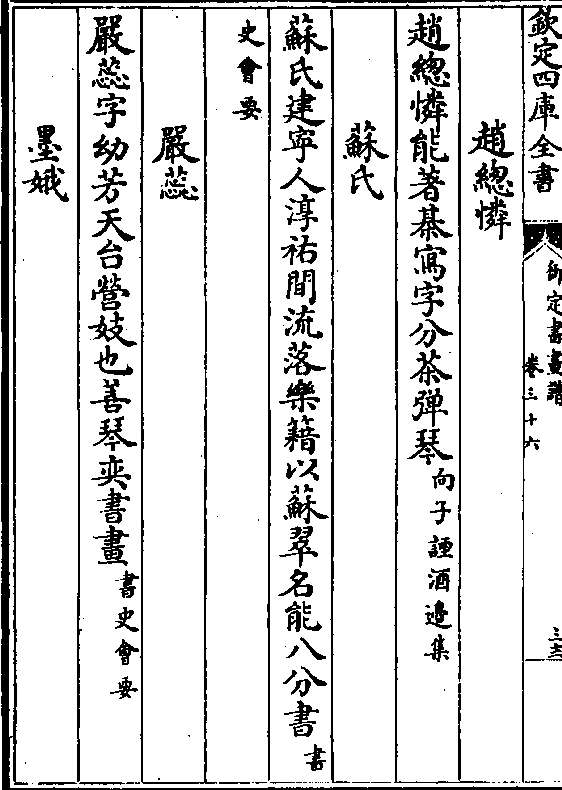 欽定四庫全書
御定書畫譜
卷三十六
趙總憐
趙總憐能著棊寫字分茶彈琴向子諲酒邉集
蘇氏
蘇氏建寜人淳祐間流落樂籍以蘇翠名能八分書書
史會要
嚴蕊
嚴蕊字幼芳天台營妓也善琴奕書畫書史會要
墨娥